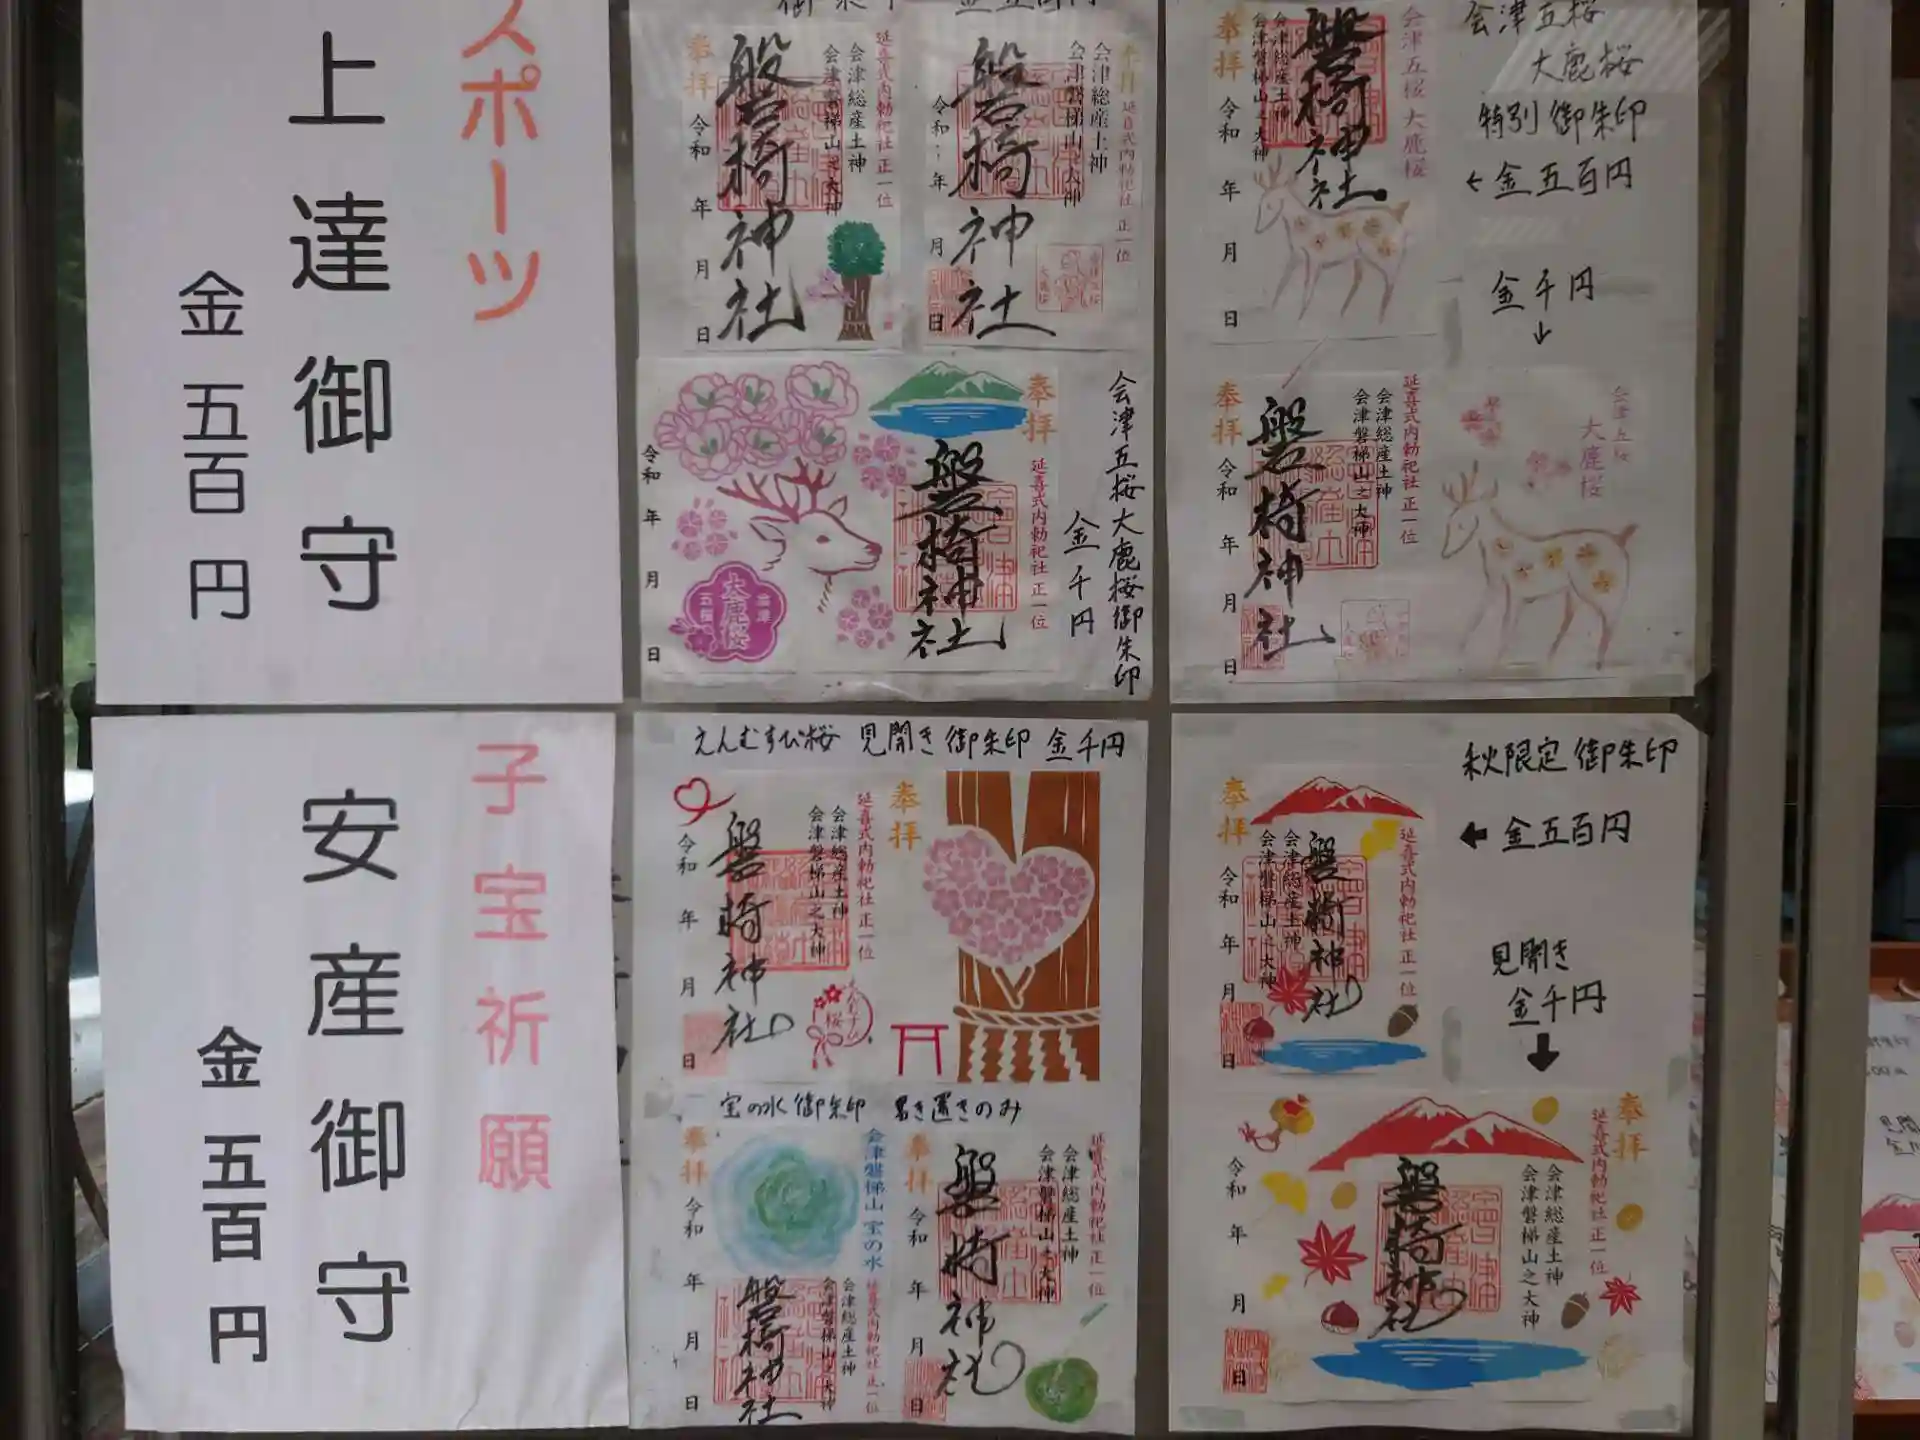 スポーツ
上達御守
金五百円
子宝祈願
安産御守
金五百円
奉拝
延喜式内勅祀社 正一位
会津総産土神
会津磐梯山之大神
磐椅神社
令和 年 月 日
会津総産土神
会津磐梯山之大神
磐椅神社
令和 年 月 日
会津五桜大鹿桜御朱印
金千円
奉拝
延喜式内勅祀社 正一位
磐椅神社
会津
大鹿桜
五桜
令和 年 月 日
会津五桜
大鹿桜
特別御朱印
←金五百円
金千円
↓
会津五桜 大鹿桜
会津総産土神
会津磐梯山之大神
磐椅神社
奉拝
令和 年 月 日
会津五桜
大鹿桜
延喜式内勅祀社 正一位
会津総産土神
会津磐梯山之大神
磐椅神社
奉拝
令和 年 月 日
えんむすび桜 見開き御朱印 金千円
奉拝
延喜式内勅祀社 正一位
会津総産土神
会津磐梯山之大神
磐椅神社
えんむすび桜
令和 年 月 日
宝の水御朱印 書き置きのみ
会津磐梯山 宝の水
奉拝
延喜式内勅祀社 正一位
会津総産土神
会津磐梯山之大神
磐椅神社
令和 年 月 日
延喜式内勅祀社 正一位
会津総産土神
会津磐梯山之大神
磐椅神社
奉拝
令和 年 月 日
秋限定御朱印
←金五百円
見開き
金千円
↓
延喜式内勅祀社 正一位
磐椅神社
会津総産土神
会津磐梯山之大神
奉拝
令和 年 月 日
奉拝
延喜式内勅祀社 正一位
会津総産土神
会津磐梯山之大神
磐椅神社
令和 年 月 日